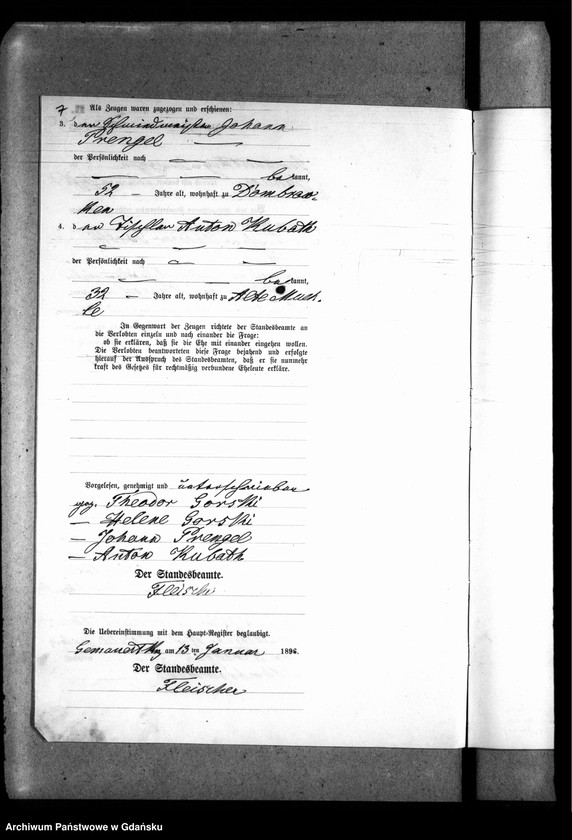 7
Als Zeugen waren zugezogen und erschienen:
3. den Schmiedmeister Johann
Prengel
der Persönlichkeit nach
bekannt,
52 Jahre alt, wohnhaft zu Dombrow-
ken
4. den Tischler Anton Kubath
der Persönlichkeit nach
bekannt,
32 Jahre alt, wohnhaft zu
In Gegenwart der Zeugen richtete der Standesbeamte an
die Verlobten einzeln und nach einander die Frage:
ob sie erklären, daß sie die Ehe mit einander eingehen wollen.
Die Verlobten beantworteten diese Frage bejahend und erfolgte
hierauf der Ausspruch des Standesbeamten, daß er sie nunmehr
kraft des Gesetzes für rechtmäßig verbundene Eheleute erkläre.
Vorgelesen, genehmigt und unterschrieben
gez. Theodor Gorski
— Helene Gorski
— Johann Prengel
— Anton Kubath
Der Standesbeamte.
Fleischer
Die Uebereinstimmung mit dem Haupt-Register beglaubigt.
am 13 ten Januar 1896.
Der Standesbeamte.
Fleischer
Archiwum Państwowe w Gdańsku